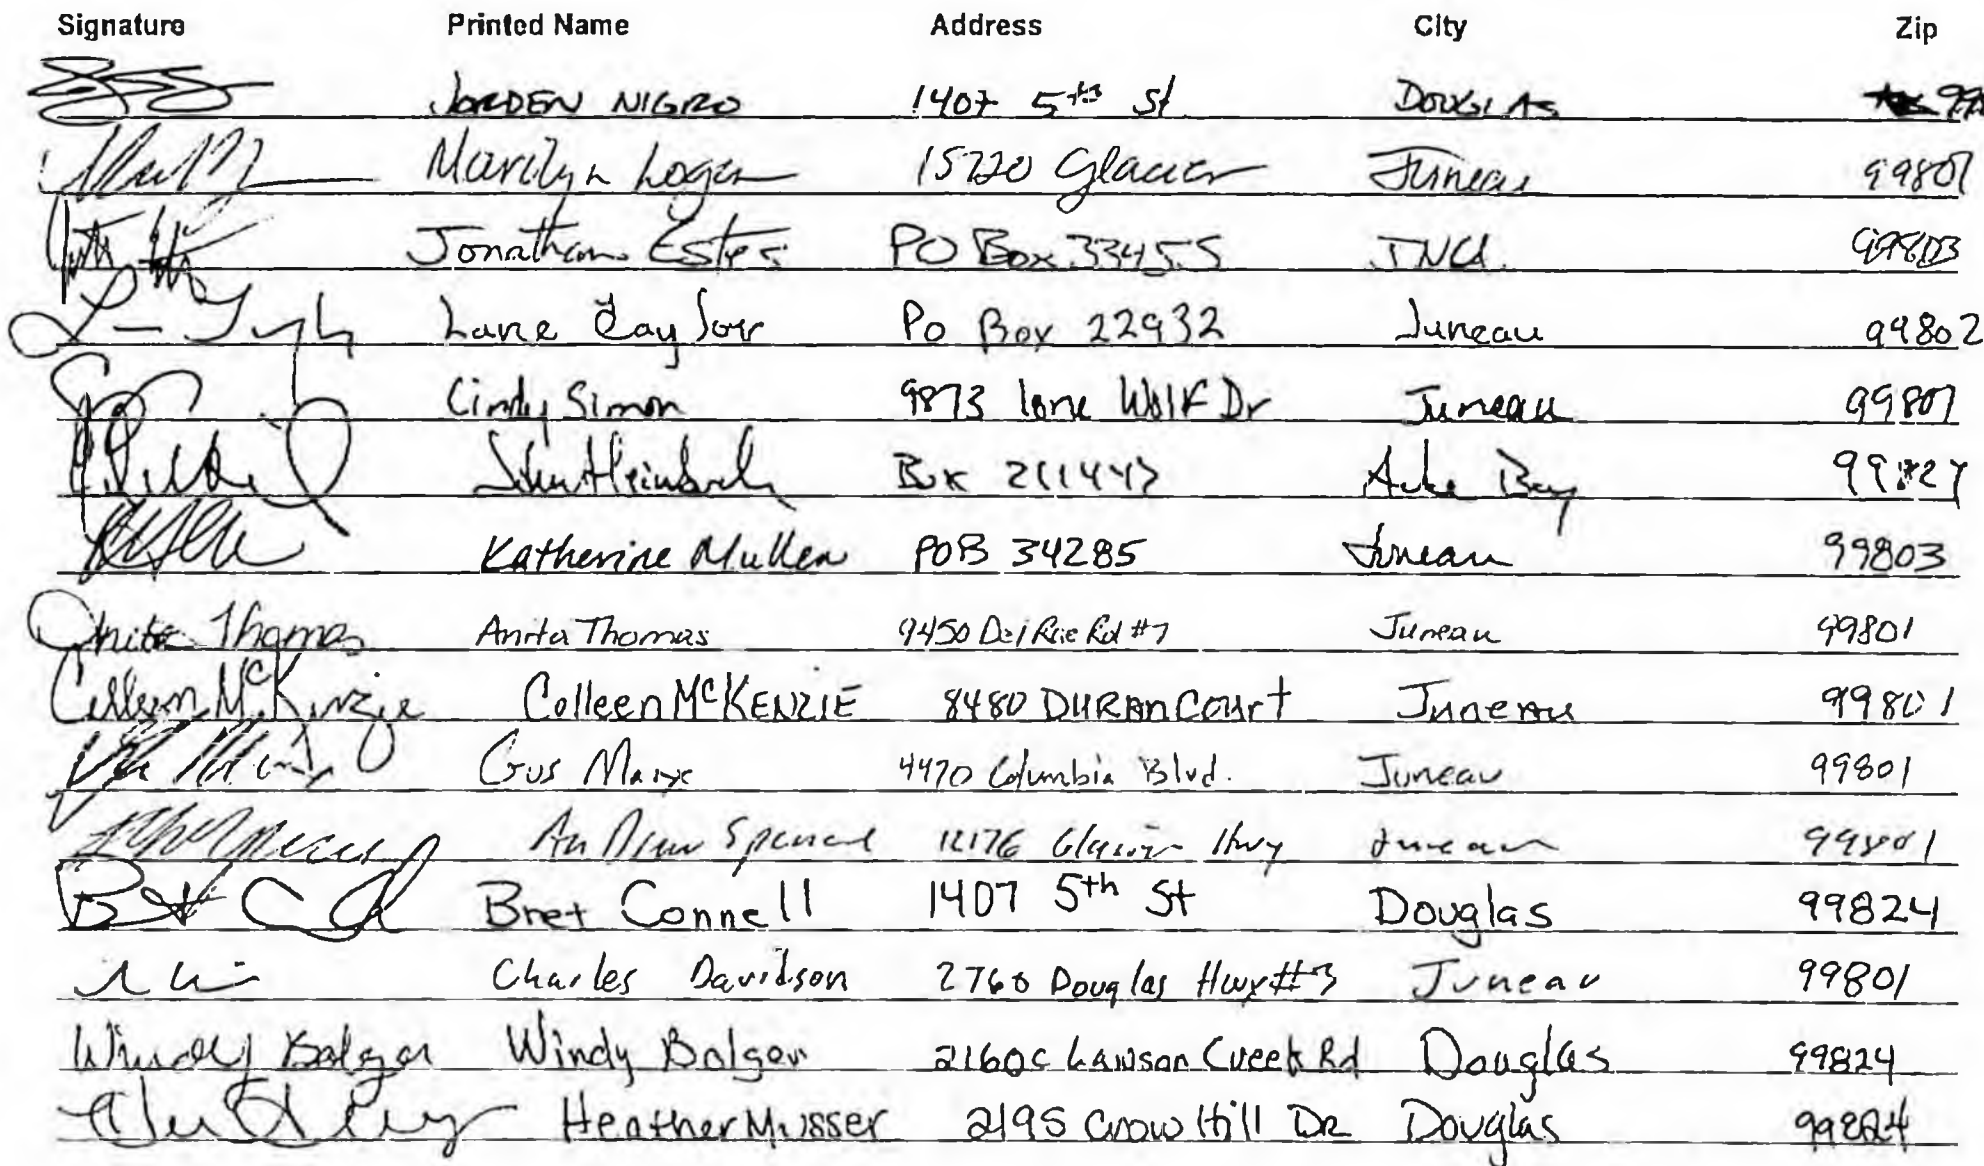 Signature Printed Name Address City Zip
JORDEN NIGRO 1407 5th St DOUGLAS
Marilyn Logan 15720 Glacier Juneau 99801
Jonathan Estes PO Box 33455 JNU 99803
Lane Taylor Po Box 22932 Juneau 99802
Cindy Simon 9873 lone Wolf Dr Juneau 99801
John Heinbach Box 211447 Auke Bay
Katherine Mullen POB 34285 Juneau 99803
Anita Thomas Anita Thomas 9450 Del Rae Rd #7 Juneau 99801
Colleen McKenzie Colleen McKENZIE 8480 DURAN Court Juneau 99801
Gus 4470 Columbia Blvd. Juneau 99801
Andrew Spencer 12176 Glacier Hwy Juneau 99801
Bret Connell 1407 5th St Douglas 99824
Charles Davidson 2760 Douglas Hwy #3 Juneau 99801
Windy Bolger Windy Bolger 2160c Lawson Creek Rd Douglas 99824
Heather Musser 2195 Crow Hill DR Douglas 99824